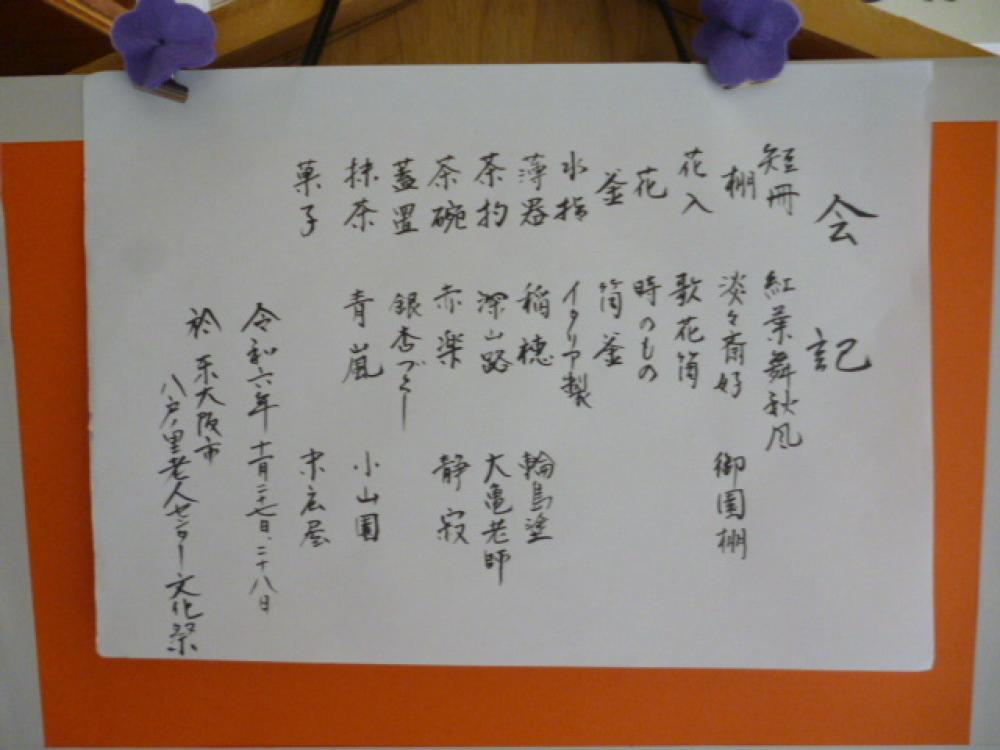 会記
短冊 紅葉舞秋風
棚 淡々斎好 御園棚
花入 歌花筒
花 時のもの
釜 筒釜
水指 イタリア製
薄器 稲穂 輪島塗
茶杓 深山路 大亀老師
茶碗 赤楽 静寂
蓋置 銀杏づくし
抹茶 青嵐 小山園
菓子 末広屋
令和六年 十一月二十七日、二十八日
於 東大阪市
八戸ノ里老人センター文化祭